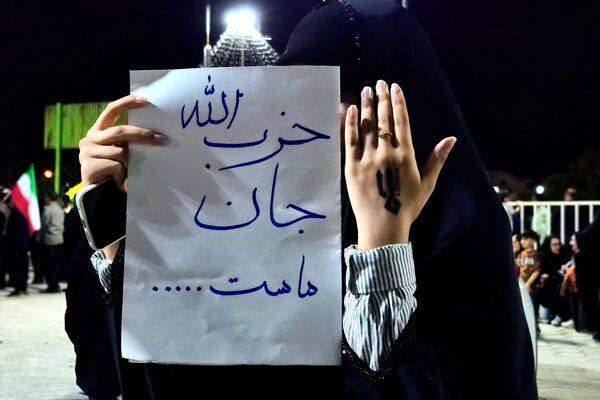 حزب الله
جان
ماست.....